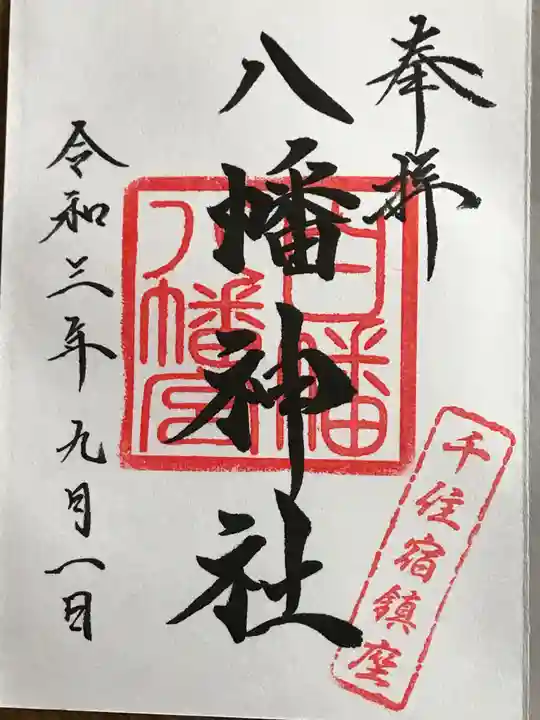 奉拝
八幡神社
白幡
八幡宮
千住宿鎮座
令和三年九月一日